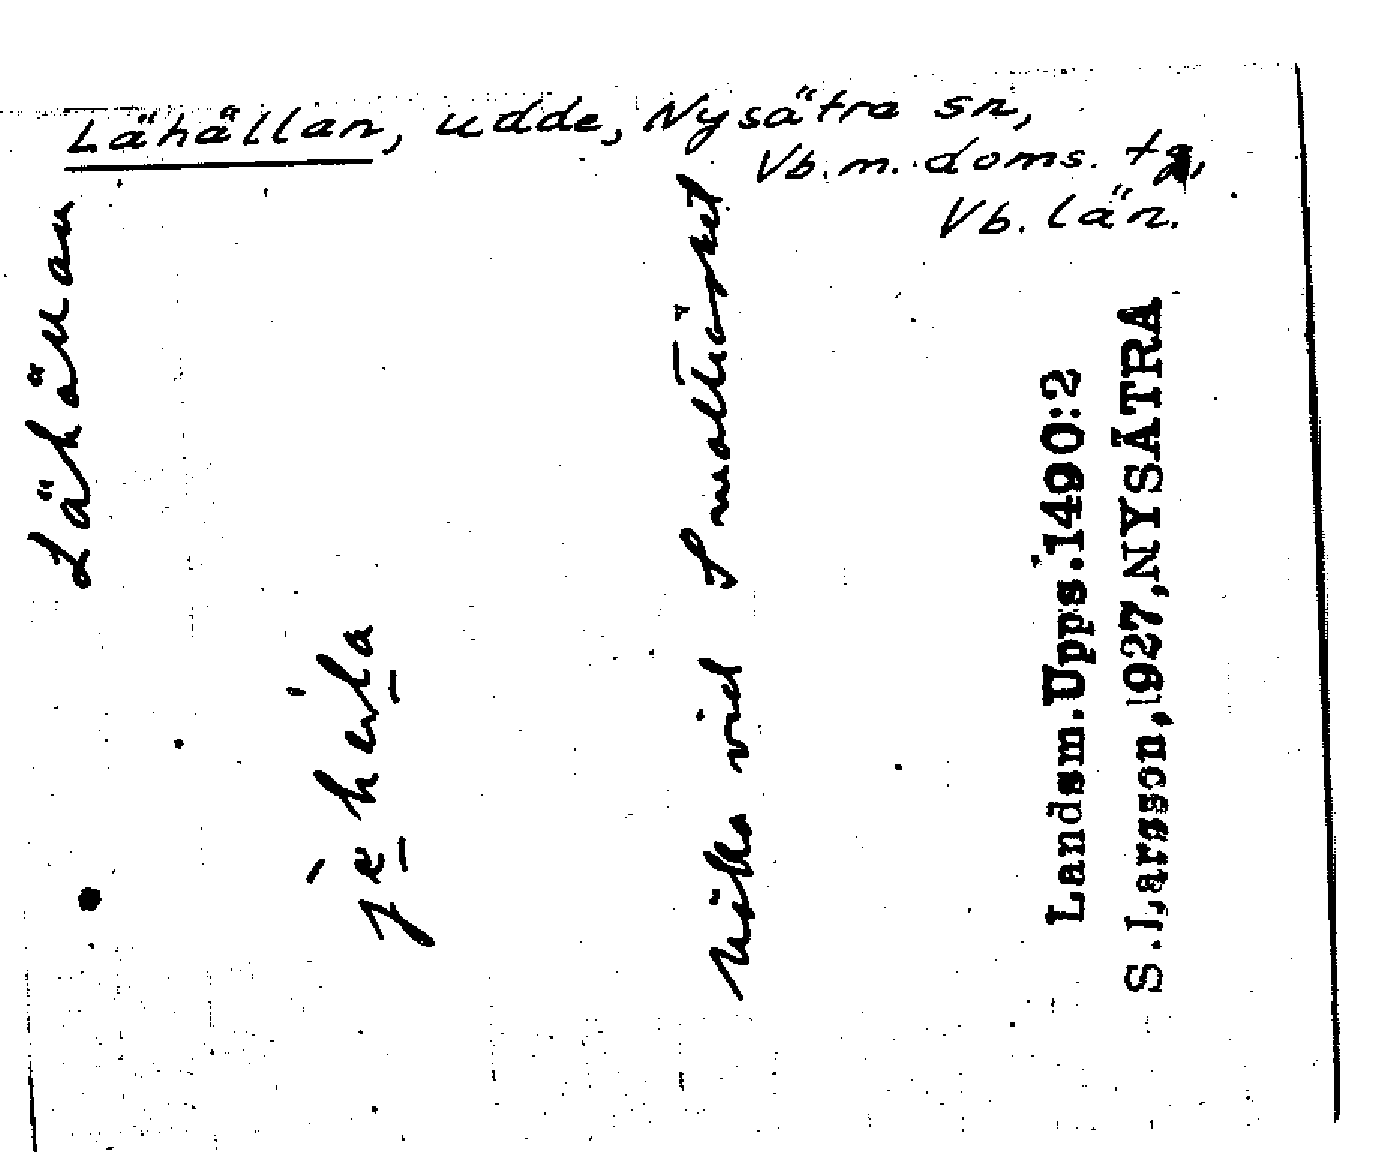 Lähällan, udde, Nysätra sn,
Vb. m. doms. tg,
Vb. län.
Lähällan
vid
Landsm.Upps.1490:2
S.Larsson,1927,NYSÄTRA